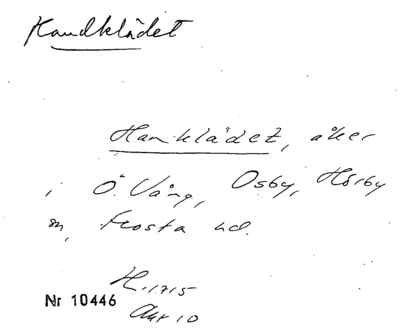 Handklädet
Hanklädet, åker
i Ö. Vång, Osby, Hörby
sn, Frosta hd.
H. 1715
Nr 10446
Akt 10